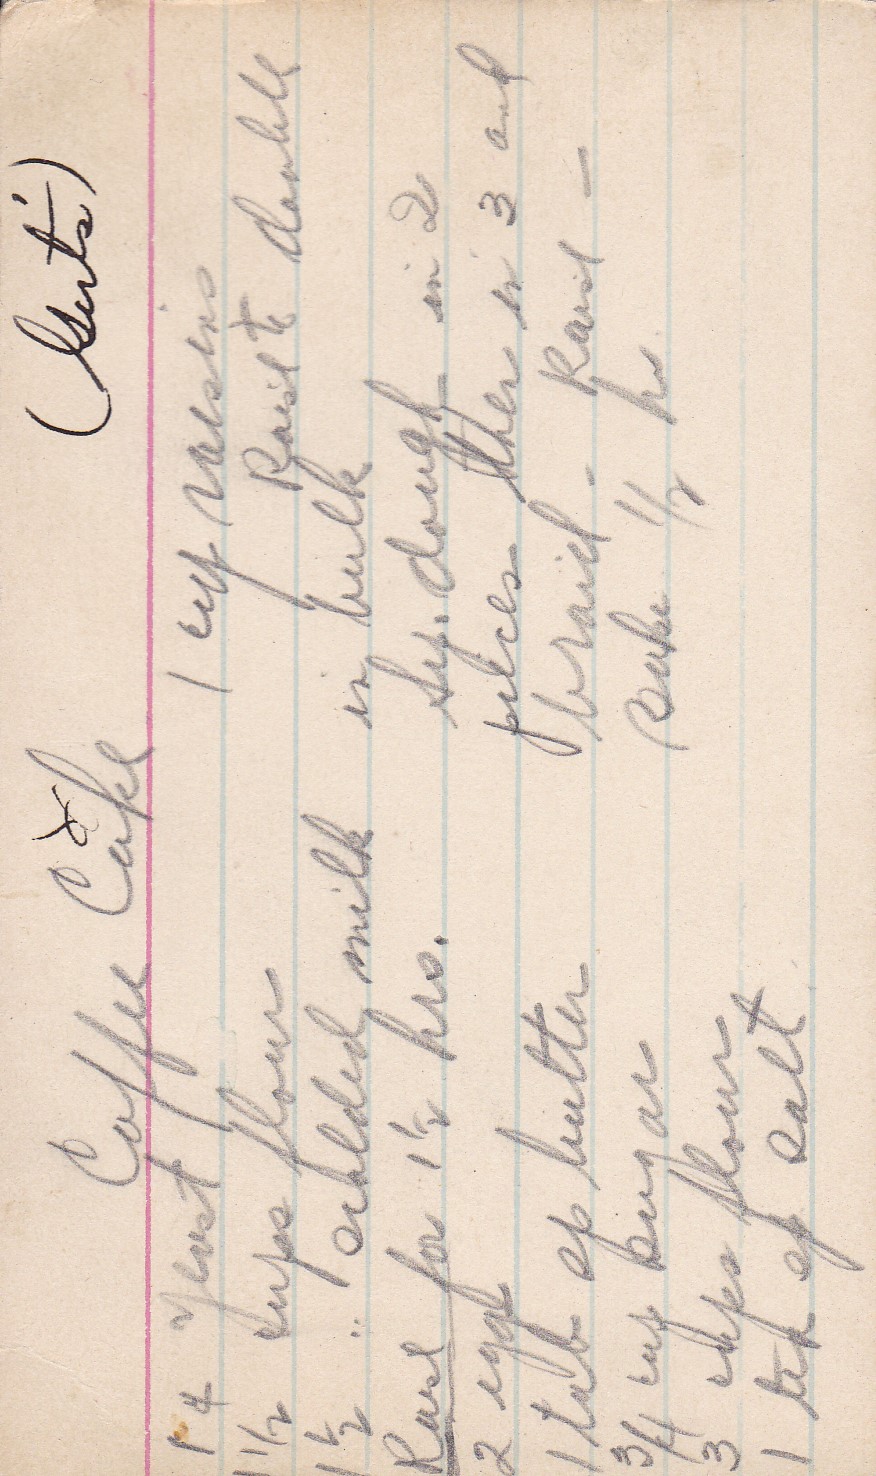 Coffee Cake
(Gert's)
1¢ Yeast
1 1/2 cups flour
1 1/2 " scalded milk
Raise for 1 1/2 hrs.
2 eggs
1 tab sp butter
3/4 cup sugar
3 cups flour
1 tea sp salt
1 cup raisins
Raise to double
in bulk
dough in 2
pieces then in 3 and
braid - Raise -
bake 1/2 hr